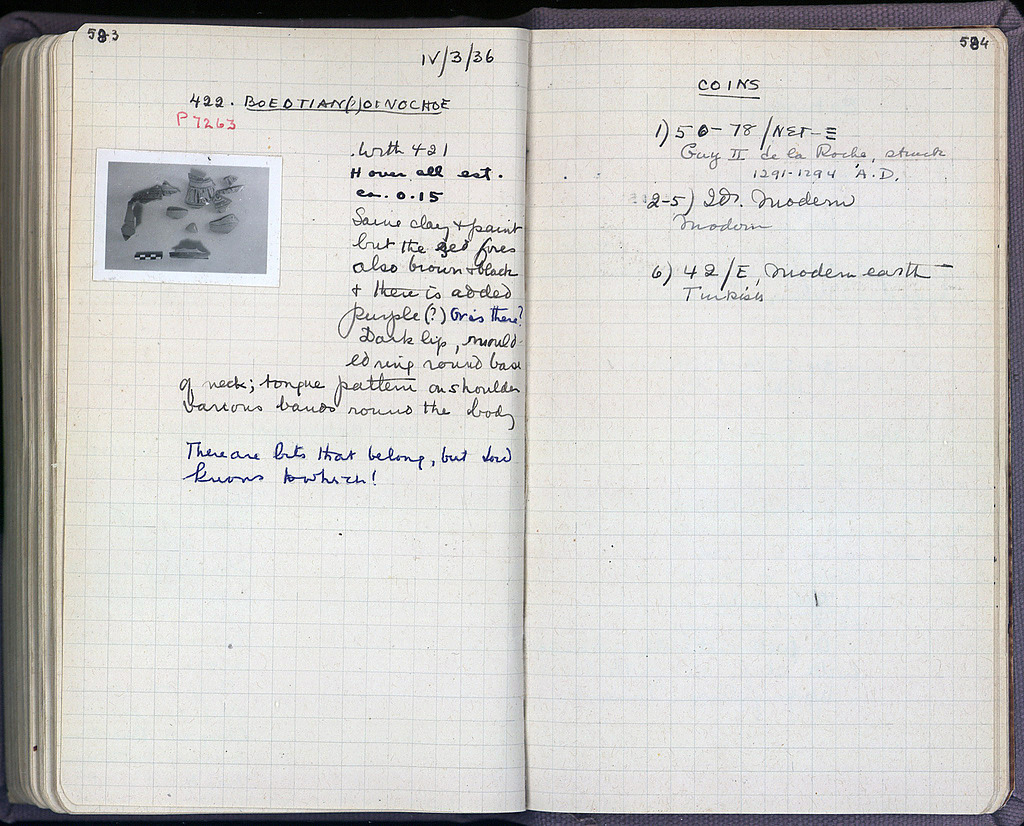 583
IV/3/36
422. BOEOTIAN(?) OINOCHOE
P 7263
With 421
H over all est.
ca. 0.15
Same clay + paint
but the red fires
also brown + black
+ there is added
purple (?) Or is there?
Dark lip, mould-
ed ring round base
of neck; tongue pattern on shoulder
various bands round the body
There are bits that belong, but Lord
knows to which!
584
COINS
1) 50-78/NET-E
Guy II de la Roche, struck
1291-1294 A.D.
2-5) Id. Modern
Modern
6) 42/E, Modern earth
Turkish